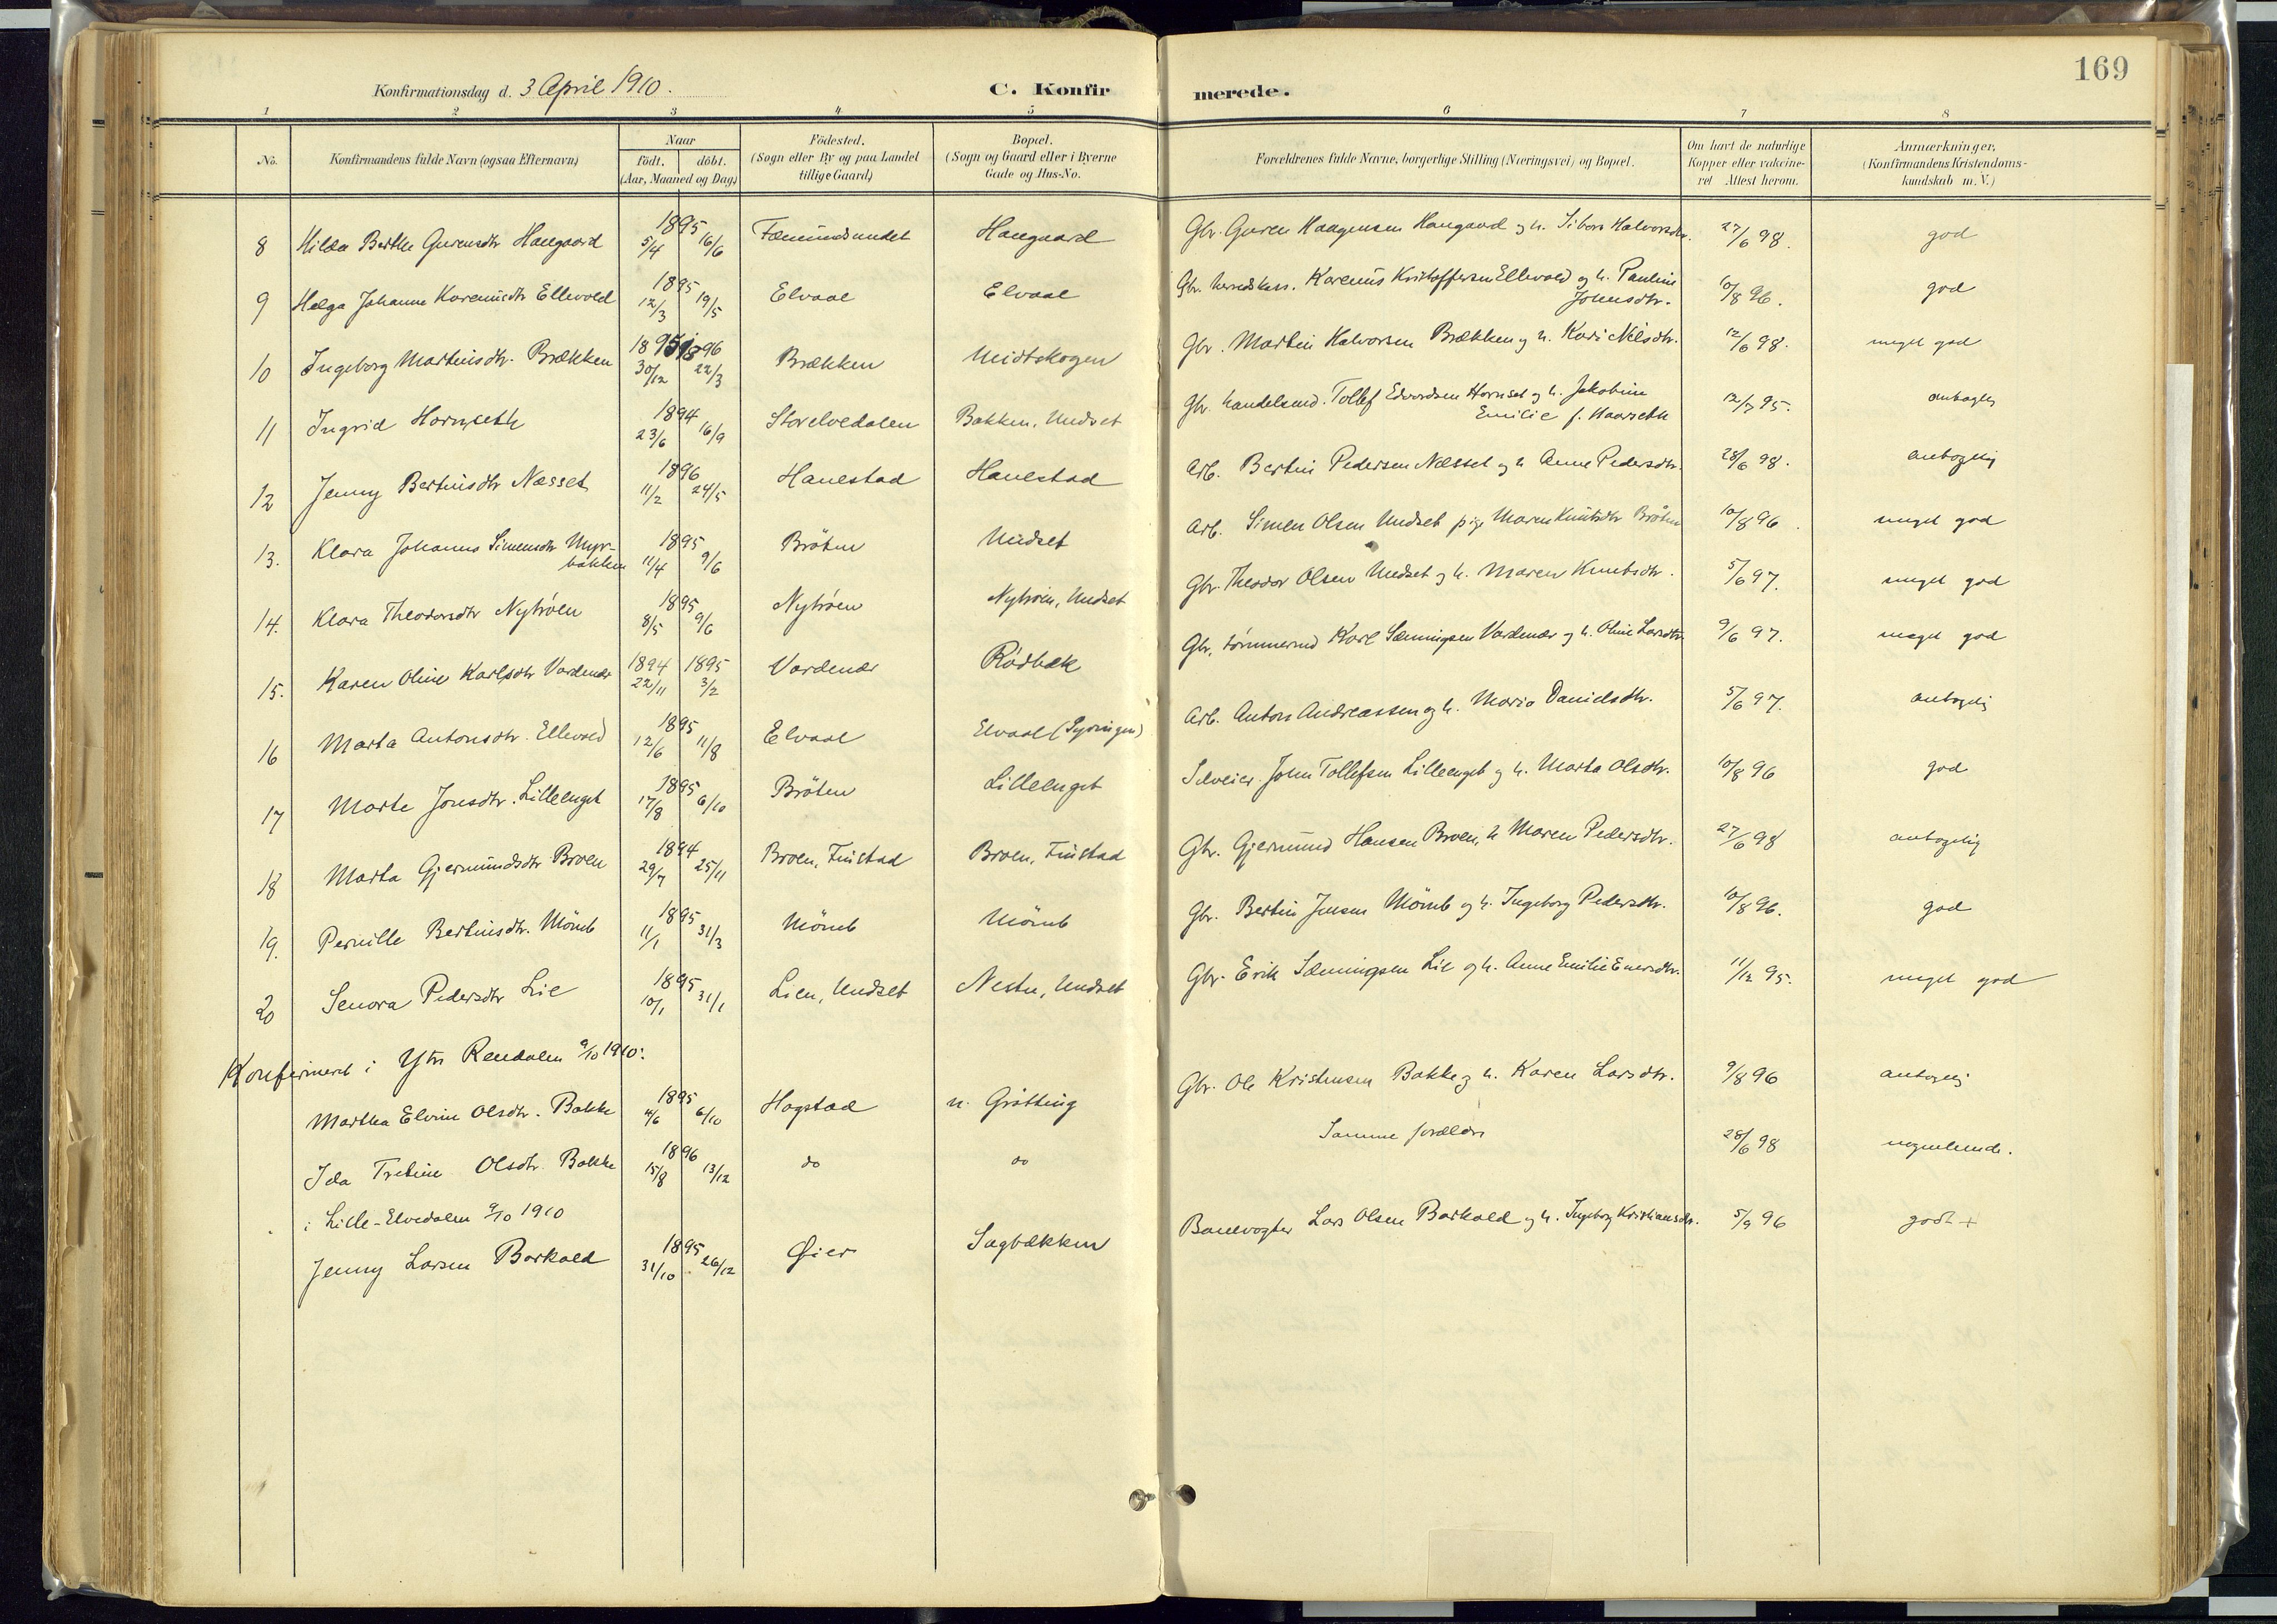 169
Konfirmationsdag d. 3 April 1910. C. Konfirmerede.
1 2 3 4 5 6 7 8
No. Konfirmandens fulde Navn (ogsaa Efternavn) Naar födt. döbt. (Aar, Maaned og Dag) Födested. (Sogn eller By og paa Landet tillige Gaard) Bopæl. (Sogn og Gaard eller i Byerne Gade og Hus-No. Forældrenes fulde Navne, borgerlige Stilling (Næringsvei) og Bopæl. Om havt de naturlige Kopper eller vakcineret Attest herom. Anmærkninger, (Konfirmandens Kristendomskundskab m. V.)
8 Hilda Berthe Gurensdtr Haugaard 1895 5/4 16/6 Fæmundsundet Haugaard Gbr. Guren Haagensen Haugaard og h. Sibor Halvorsdtr. 27/6 98. god
9 Helga Johanne Kareniusdtr Ellevold 1895 12/3 19/5 Elvaal Elvaal Gbr. Karenius Kristoffersen Ellevold og h. Pauline
Johnsdtr. 10/8 96. god
10 Ingeborg Martinsdtr. Brækken 1895 1896 30/12 22/3 Brækken Midtskogen Gbr. Martin Halvorsen Brækken og h. Kari Nilsdtr. 12/6 98. meget god
11 Ingrid Hornseth 1894 23/6 16/9 Storelvedalen Bakken, Undset Gbr. handelsmd. Tollef Edvardsen Hornset og h. Jakobine
Emilie f. Haarseth 12/7 95. antagelig
12 Jenny Bertinsdtr Næsset 1896 11/2 24/5 Hanestad Hanestad Arb. Bertin Pedersen Næsset og h Anne Pedersdtr. 28/6 98. antagelig
13. Klara Johanne Simensdtr Myr-
bakken 1895 11/4 9/6 Bröten Undset Arb. Simen Olsen Undset pige Maren Knutsdtr Bröten 10/8 96. meget god
14. Klara Theodorsdtr Nytröen 1895 8/5 9/6 Nytröen Nytröen, Undset Gbr. Theodor Olsen Undset og h. Maren Knutsdtr. 5/6 97. meget god
15. Karen Oline Karlsdtr Vardenær 1894 22/11 1895 3/2 Vardenær Rödbæk Gbr, tömmermd Karl Sæmingsen Vardenær og h. Oline Larsdtr. 9/6 97. meget god
16 Marta Antonsdtr. Ellevold 1895 12/6 11/8 Elvaal Elvaal Arb. Anton Andreassen og h. Maria Danielsdtr. 5/6 97. antagelig
17 Marte Jonsdtr. Lilleenget 1895 17/8 6/10 Bröten Lilleenget Selveier John Tollefsen Lilleenget og h. Marta Olsdtr. 10/8 96 god
18 Marta Gjermundsdtr Broen 1894 29/7 25/11 Broen, Finstad Broen, Finstad Gbr. Gjermund Hansen Broen, h Maren Pedersdtr. 27/6 98 antagelig
19. Pernille Bertinsdtr. Mömb 1895 11/1 31/3 Mömb Mömb Gbr. Bertin Jensen Mömb og h. Ingeborg Pedersdtr. 10/8 96. god
20 Senora Pedersdtr Lie 1895 10/1 31/1 Lien, Undset Nestu, Undset Gbr. Erik Sæmingsen Lie og h. Anne Emilie Enersdtr. 11/12 95. meget god
Konfirmert i Ytre Rendalen 9/10 1910:
Martha Elvine Olsdtr. Bakke 1895 4/6 6/10 Hagstad n. Gröttng Gbr. Ole Kristensen Bakke og h. Karen Larsdtr. 9/8 96 antagelig
Ida Tretine Olsdtr. Bakke 1896 15/8 13/12 do do Samme forældre 28/6 98
i Lille-Elvedalen 9/10 1910
Jenny Larsen Barkald 1895 31/10 26/12 Öier Sagbækken Banevogter Lars Olsen Barkald og h. Ingeborg Kristiansdtr. 5/9 96 godt +